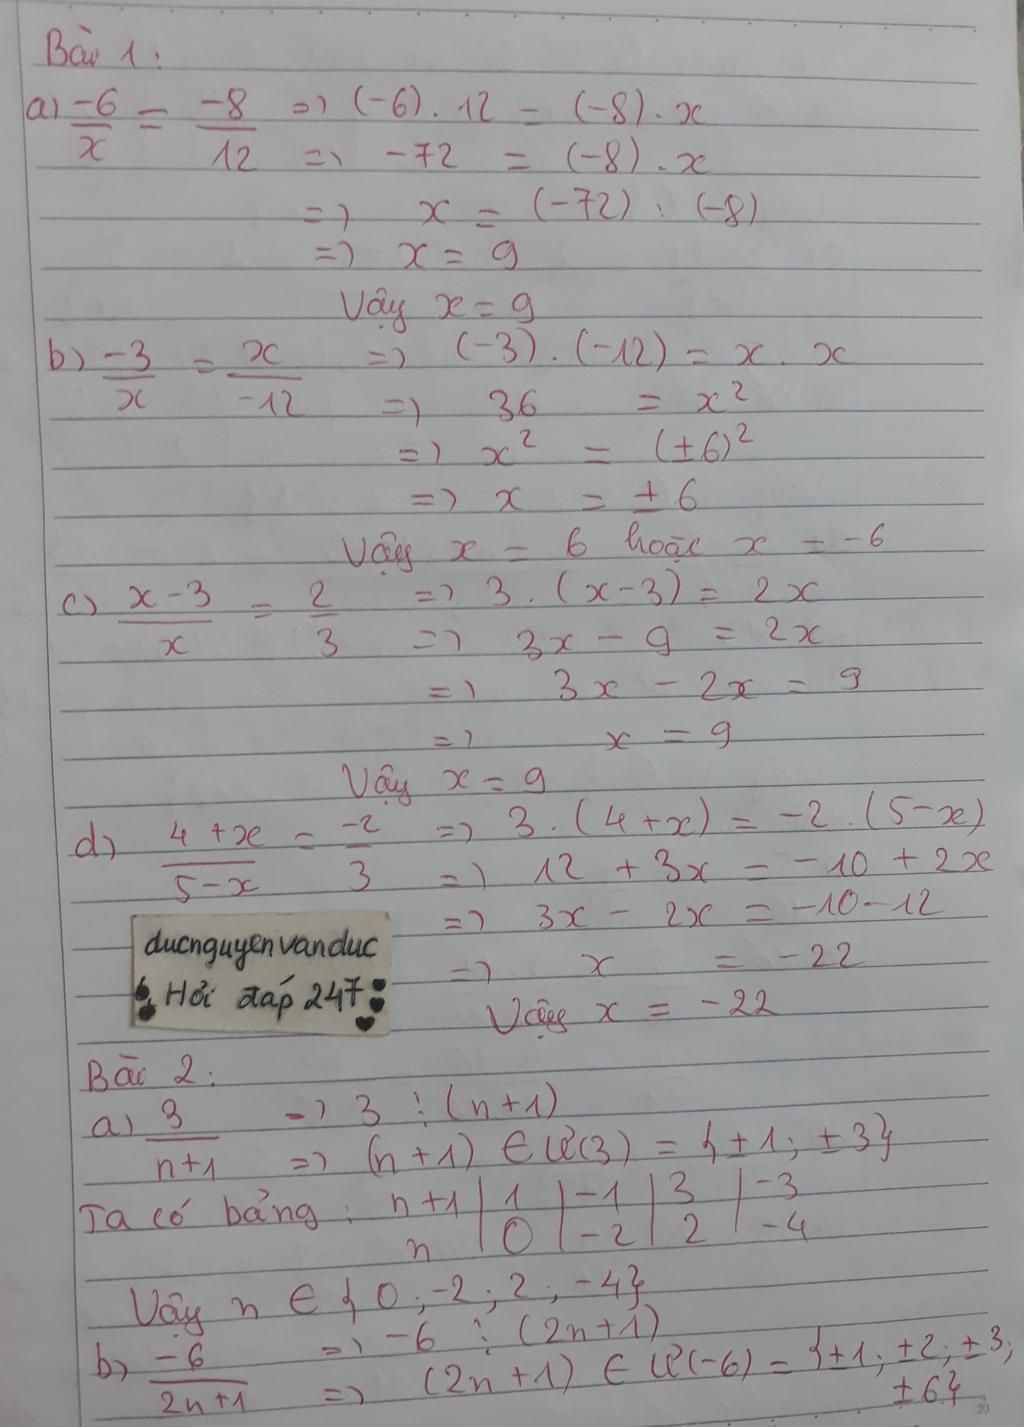 Bài 1:
a) -6/x = -8/12 => (-6) . 12 = (-8) . x
=> -72 = (-8) . x
=> x = (-72) : (-8)
=> x = 9
Vậy x = 9
b) -3/x = x/-12 => (-3) . (-12) = x . x
=> 36 = x²
=> x² = (±6)²
=> x = ±6
Vậy x = 6 hoặc x = -6
c) x-3/x = 2/3 => 3 . (x-3) = 2x
=> 3x - 9 = 2x
=> 3x - 2x = 9
=> x = 9
Vậy x = 9
d) 4+x/5-x = -2/3 => 3 . (4+x) = -2 . (5-x)
=> 12 + 3x = -10 + 2x
=> 3x - 2x = -10-12
=> x = -22
Vậy x = -22
ducnguyenvanduc
Hỏi đáp 247
Bài 2:
a) 3/n+1 => 3 ⋮ (n+1)
=> (n+1) ∈ Ư(3) = {±1; ±3}
Ta có bảng: n+1 | 1 | -1 | 3 | -3
n | 0 | -2 | 2 | -4
Vậy n ∈ {0; -2; 2; -4}
b) -6/2n+1 => -6 ⋮ (2n+1)
=> (2n+1) ∈ Ư(-6) = {±1; ±2; ±3;
±6}